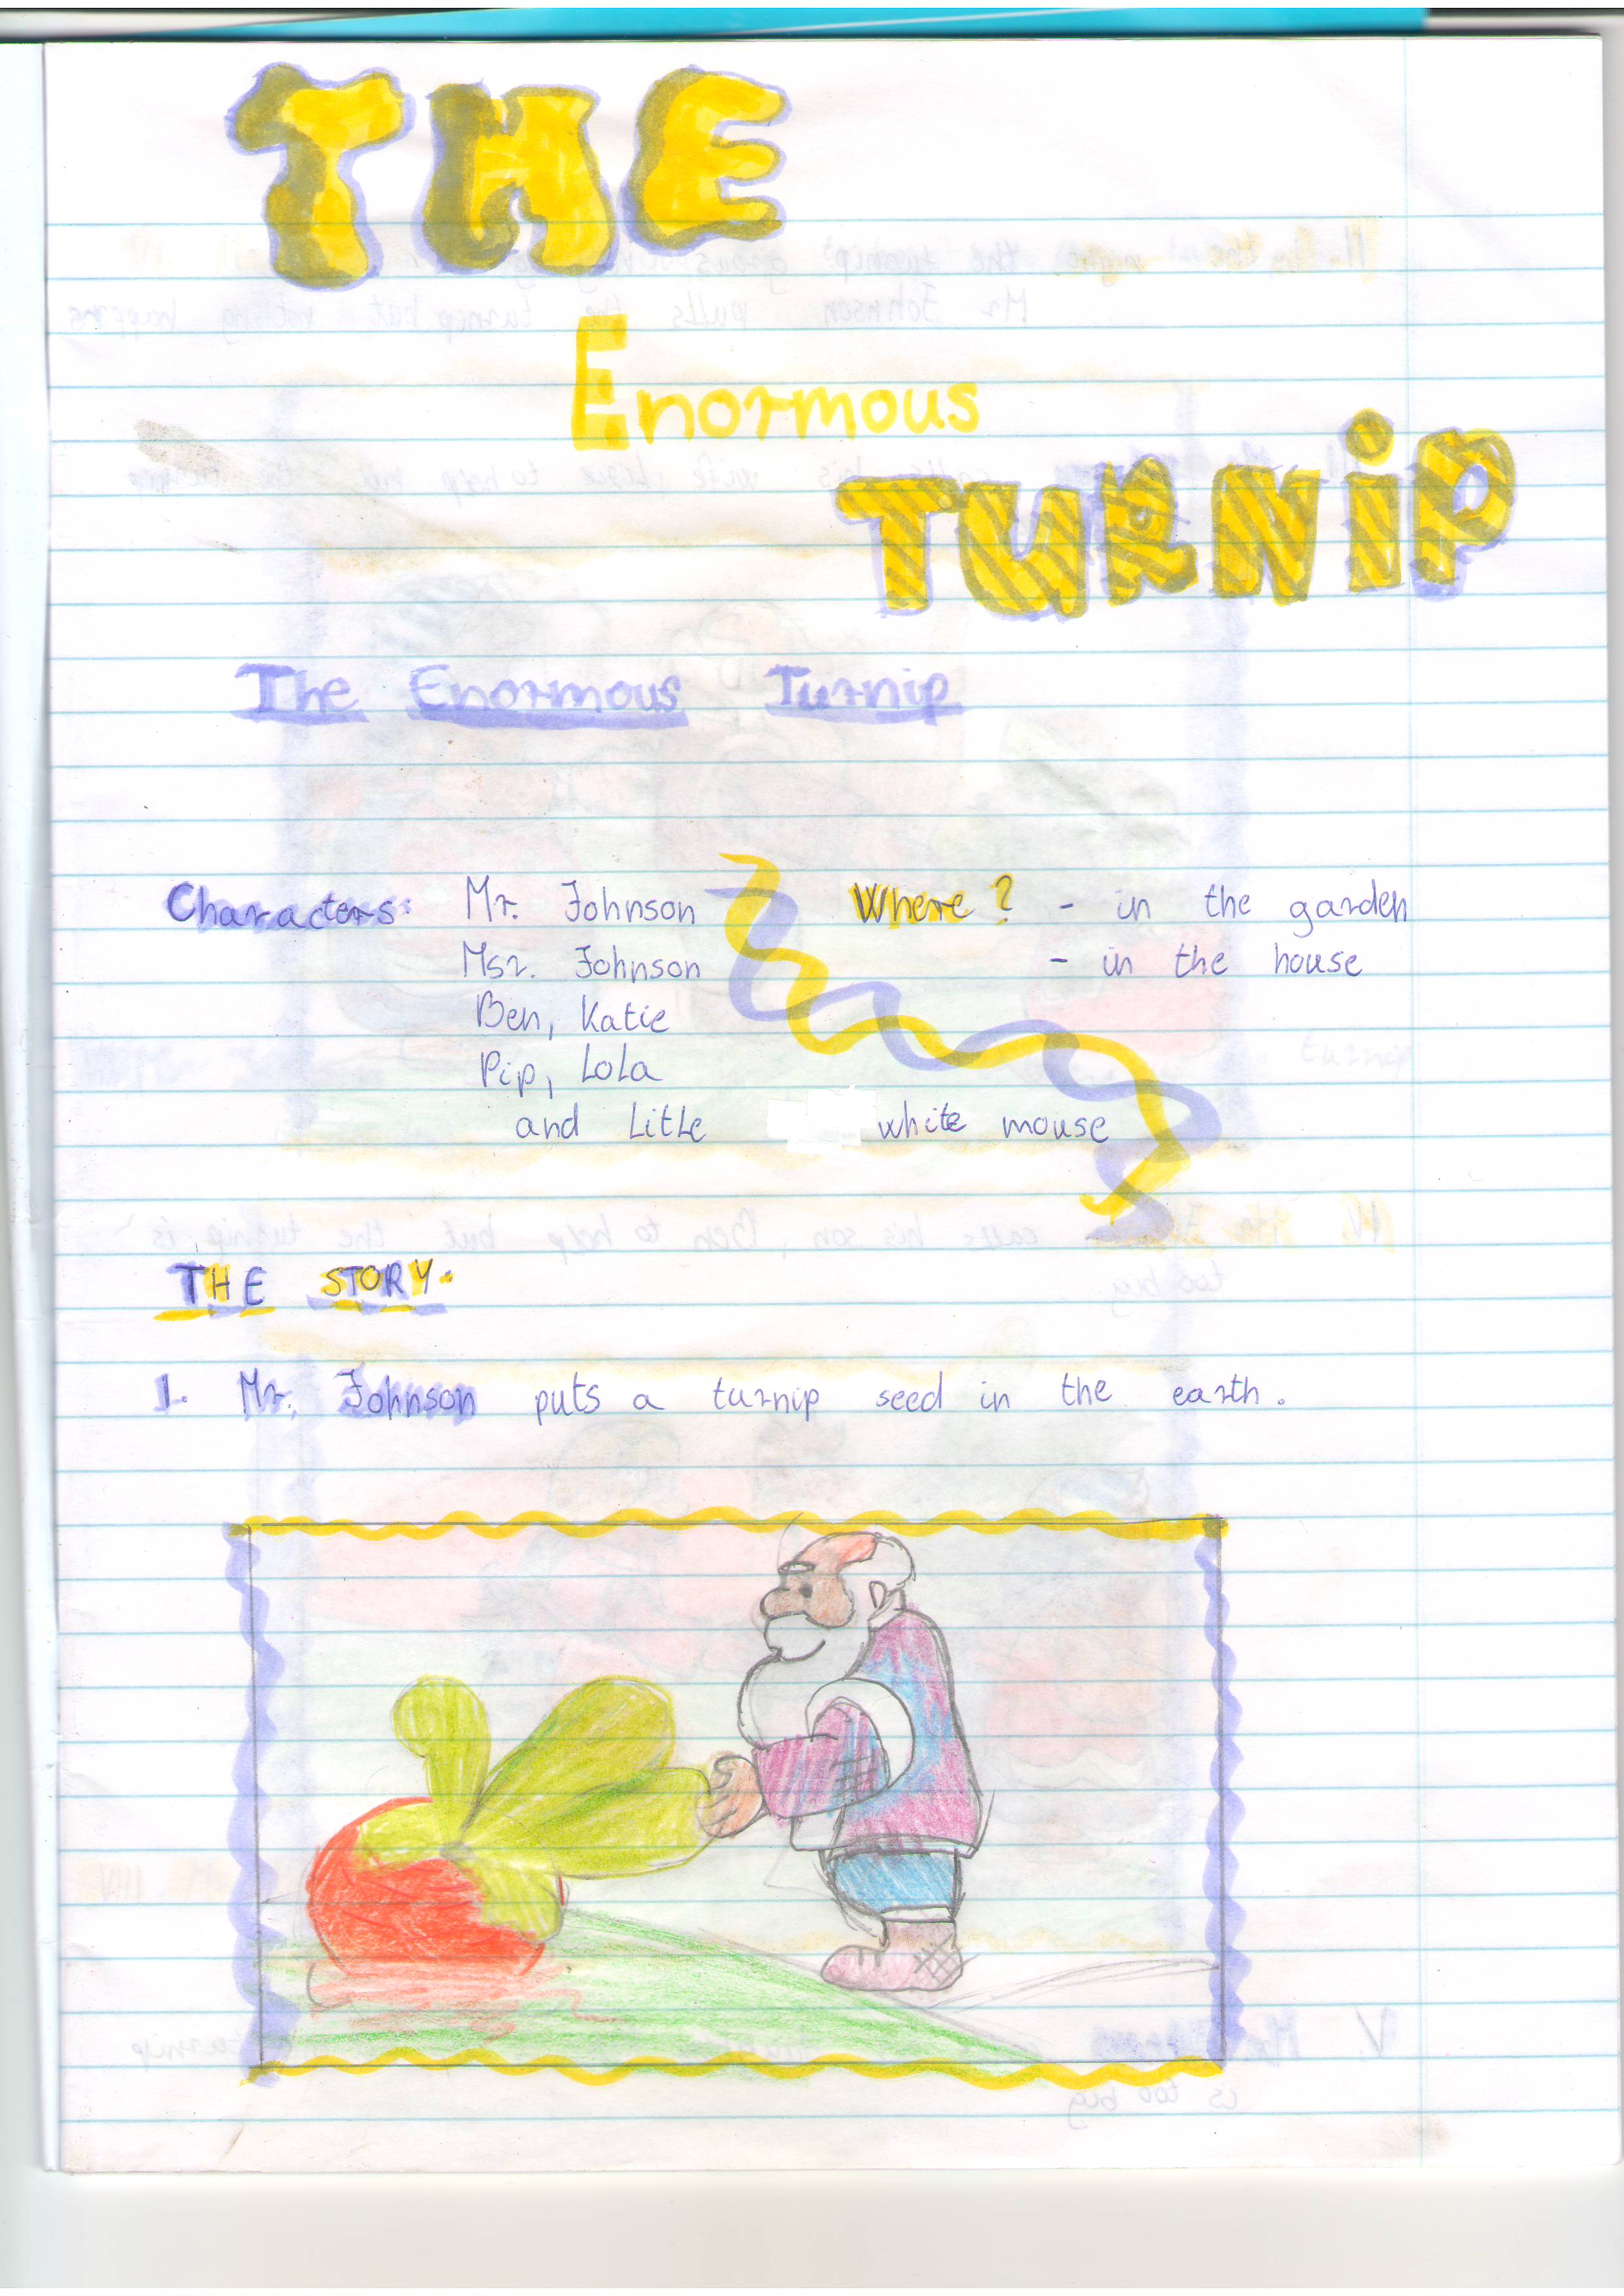 THE
Enormous
TURNiP
The Enormous Turnip
Characters: Mr. Johnson Where? - in the garden
Msr. Johnson - in the house
Ben, Katie
Pip, Lola
and little white mouse
THE STORY.
1. Mr. Johnson puts a turnip seed in the earth.